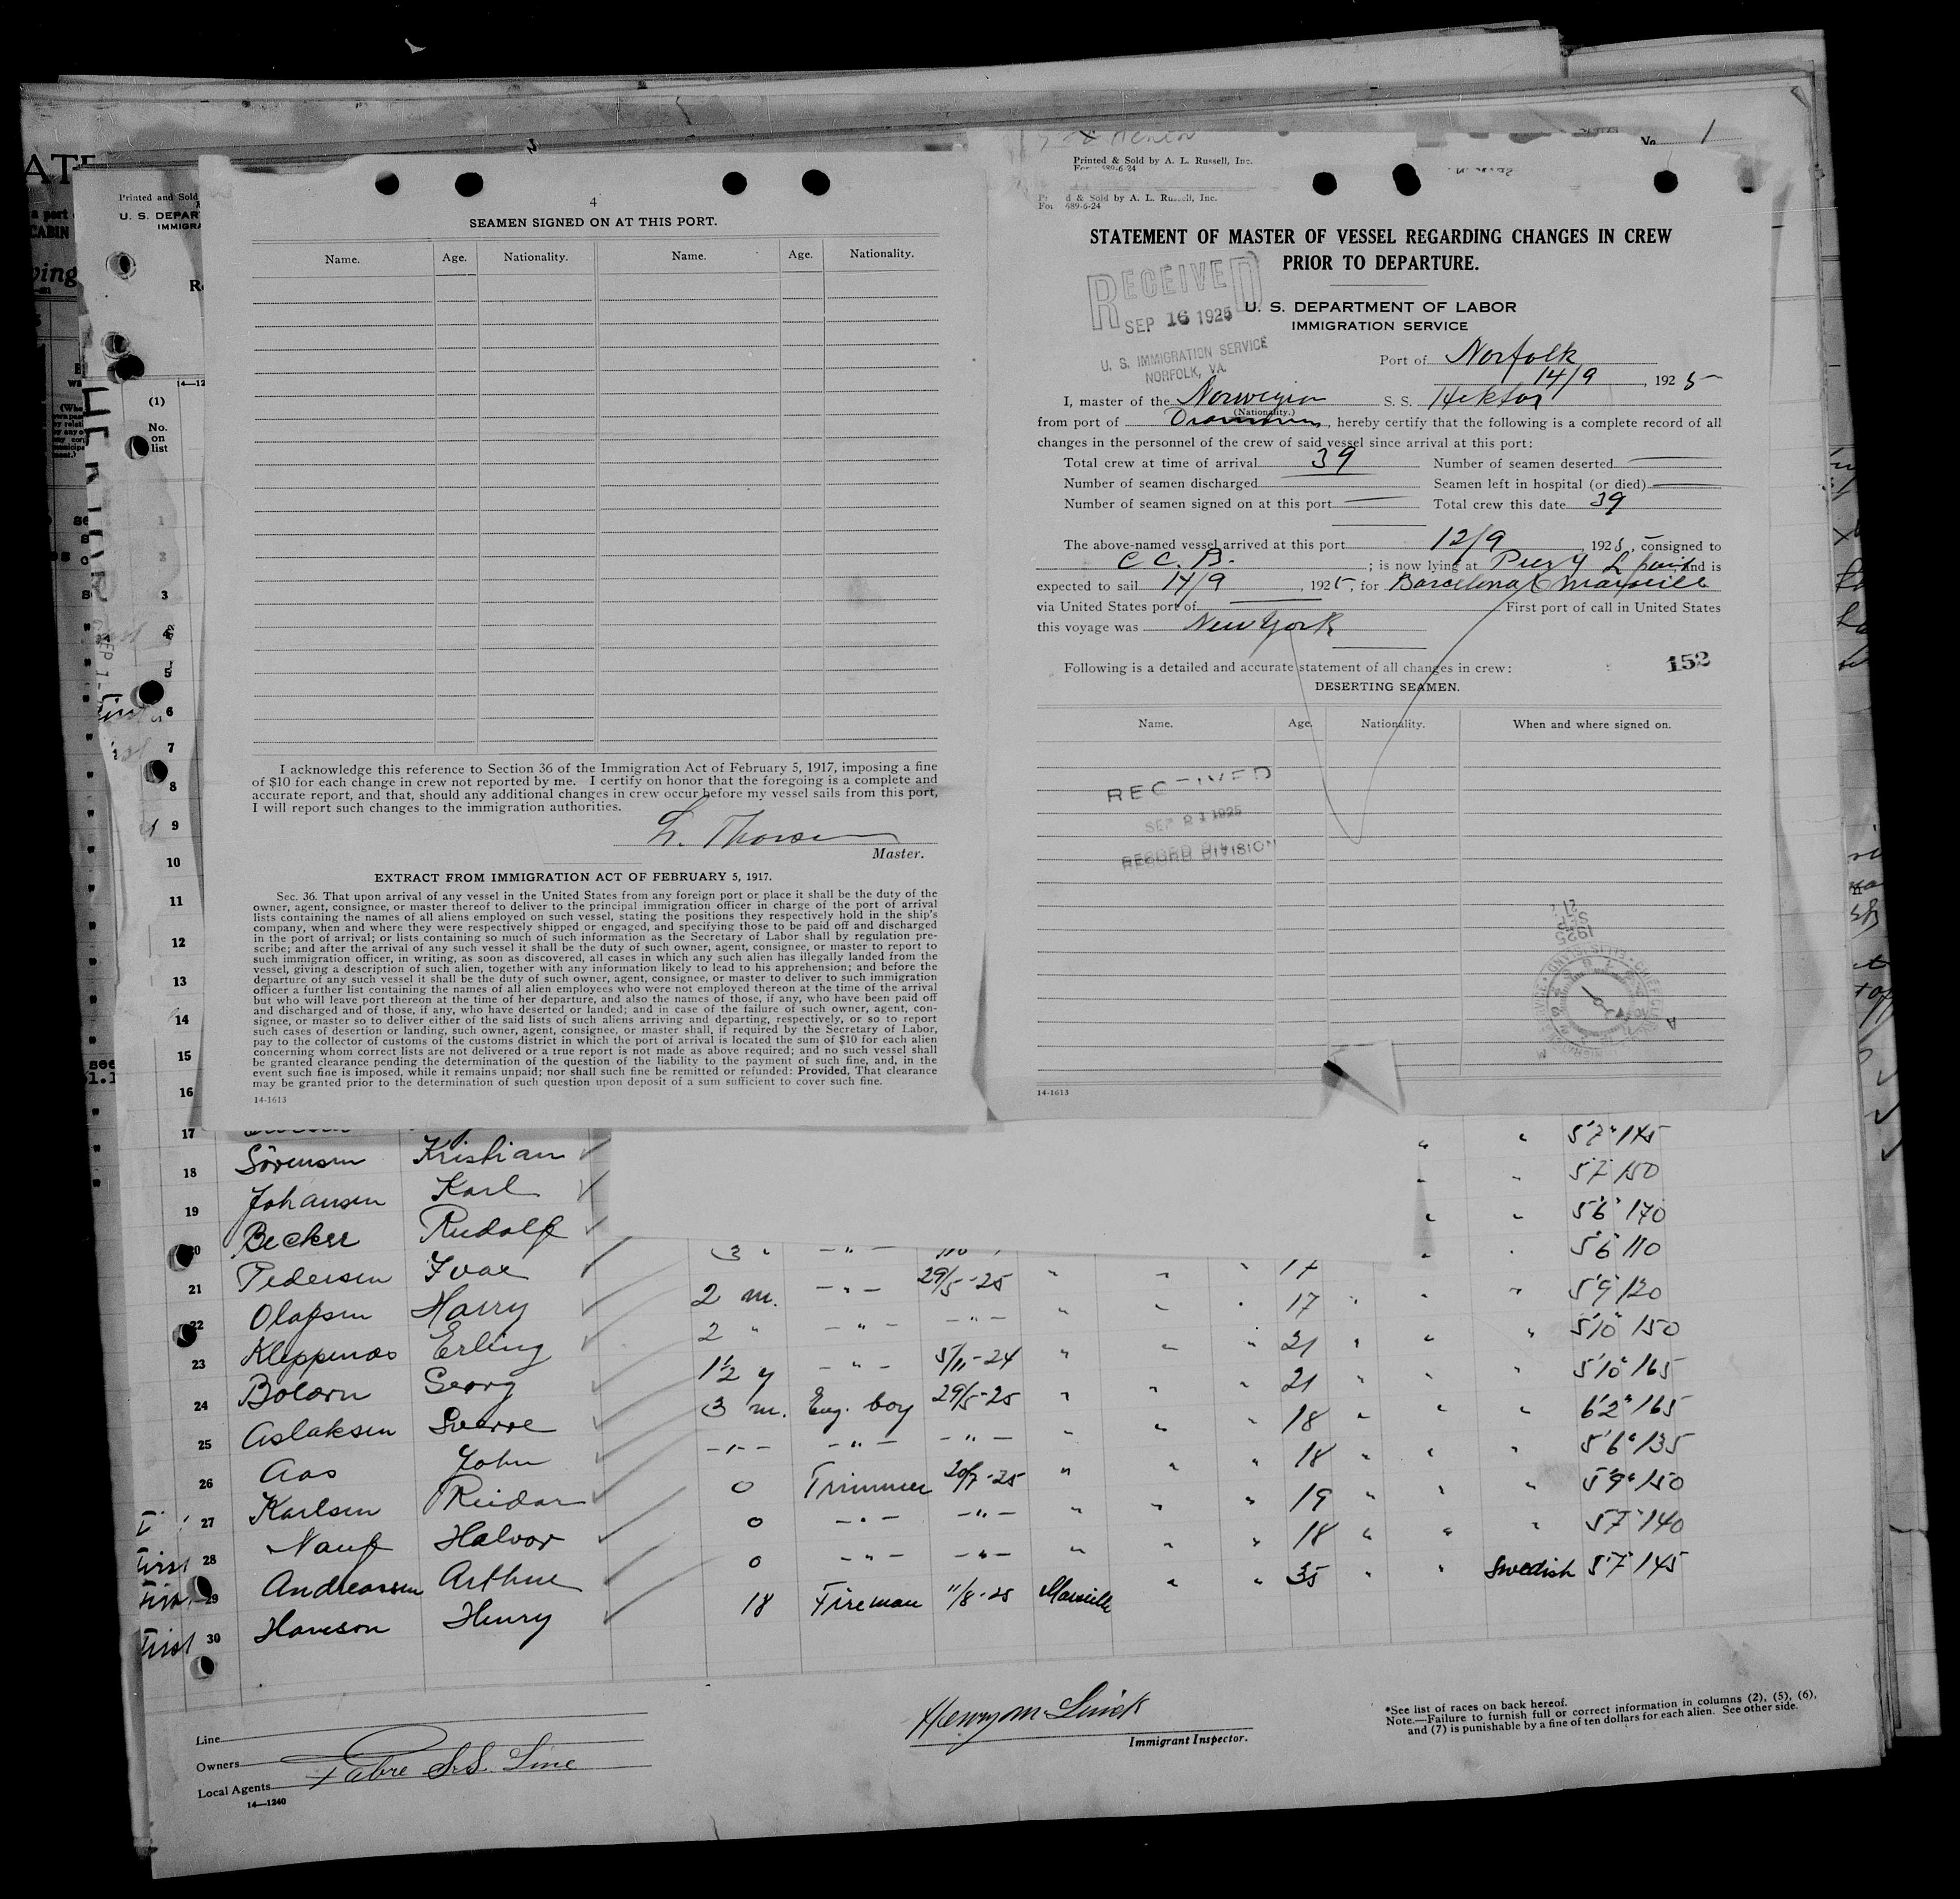 4
SEAMEN SIGNED ON AT THIS PORT.
Name. Age. Nationality. Name. Age. Nationality.
I acknowledge this reference to Section 36 of the Immigration Act of February 5, 1917, imposing a fine
of $10 for each change in crew not reported by me. I certify on honor that the foregoing is a complete and
accurate report, and that, should any additional changes in crew occur before my vessel sails from this port,
I will report such changes to the immigration authorities.
Master.
EXTRACT FROM IMMIGRATION ACT OF FEBRUARY 5, 1917.
Sec. 36. That upon arrival of any vessel in the United States from any foreign port or place it shall be the duty of the
owner, agent, consignee, or master thereof to deliver to the principal immigration officer in charge of the port of arrival
lists containing the names of all aliens employed on such vessel, stating the positions they respectively hold in the ship's
company, when and where they were respectively shipped or engaged, and specifying those to be paid off and discharged
in the port of arrival; or lists containing so much of such information as the Secretary of Labor shall by regulation pre-
scribe; and after the arrival of any such vessel it shall be the duty of such owner, agent, consignee, or master to report to
such immigration officer, in writing, as soon as discovered, all cases in which any such alien has illegally landed from the
vessel, giving a description of such alien, together with any information likely to lead to his apprehension; and before the
departure of any such vessel it shall be the duty of such owner, agent, consignee, or master to deliver to such immigration
officer a further list containing the names of all alien employees who were not employed thereon at the time of the arrival
but who will leave port thereon at the time of her departure, and also the names of those, if any, who have been paid off
and discharged and of those, if any, who have deserted or landed; and in case of the failure of such owner, agent, con-
signee, or master so to deliver either of the said lists of such aliens arriving and departing, respectively, or so to report
such cases of desertion or landing, such owner, agent, consignee, or master shall, if required by the Secretary of Labor,
pay to the collector of customs of the customs district in which the port of arrival is located the sum of $10 for each alien
concerning whom correct lists are not delivered or a true report is not made as above required; and no such vessel shall
be granted clearance pending the determination of the question of the liability to the payment of such fine, and, in the
event such fine is imposed, while it remains unpaid; nor shall such fine be remitted or refunded: Provided, That clearance
may be granted prior to the determination of such question upon deposit of a sum sufficient to cover such fine.
14-1613
No. 1
Printed & Sold by A. L. Russell, Inc.
689-6-24
& Sold by A. L. Russell, Inc.
689-6-24
STATEMENT OF MASTER OF VESSEL REGARDING CHANGES IN CREW
PRIOR TO DEPARTURE.
RECEIVED
SEP 16 1925
U. S. IMMIGRATION SERVICE
NORFOLK, VA.
U. S. DEPARTMENT OF LABOR
IMMIGRATION SERVICE
Port of Norfolk
14/9, 1925
I, master of the Norwegian S. S. Hektor
(Nationality.)
from port of Drammen, hereby certify that the following is a complete record of all
changes in the personnel of the crew of said vessel since arrival at this port:
Total crew at time of arrival 39 Number of seamen deserted
Number of seamen discharged Seamen left in hospital (or died)
Number of seamen signed on at this port Total crew this date 39
The above-named vessel arrived at this port 12/9, 1925, consigned to
C C. B. ; is now lying at and is
expected to sail 14/9, 1925, for Barcelona
via United States port of First port of call in United States
this voyage was New York
Following is a detailed and accurate statement of all changes in crew:
152
DESERTING SEAMEN.
Name. Age. Nationality. When and where signed on.
RECEIVED
SEP 21 1925
RECORD DIVISION
14-1613
Printed and Sold
U. S. DEPAR
IMMIGRA
(1)
No.
on
list
1
2
3
4
5
6
7
8
9
10
11
12
13
14
15
16
17 5'7" 145
18 Sörensen Kristian 5'7" 150
19 Johansen Karl 5'6" 170
20 Becker Rudolf 5'6" 110
21 Pedersen Ivar 2 m. 29/5-25 17 5'9" 120
22 Olafsen Harry 2 " 17 5'10" 150
23 Kleppenas Erling 1½ y 5/11-24 21 5'10" 165
24 Georg 3 m. Eng. boy 29/5-25 21 6'2" 165
25 Aslaksen Sverre 18 5'6" 135
26 Aas John 0 Trimmer 20/7-25 18 5'9" 150
27 Karlsen Reidar 0 19 5'7" 140
First 28 Halvor 0 18
29 Andreassen Arthur 18 Fireman 11/8-25 Marseille 35 Swedish 5'7" 145
First 30 Hansson Henry
Line
Owners
Local Agents Fabre S.S. Line
14—1240
Immigrant Inspector.
*See list of races on back hereof.
Note.—Failure to furnish full or correct information in columns (2), (5), (6),
and (7) is punishable by a fine of ten dollars for each alien. See other side.